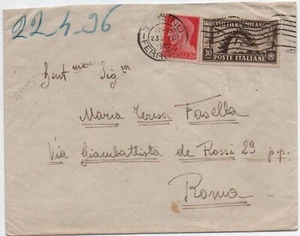 22-4-36
FIERA MILANO
POSTE ITALIANE
FERR
Gent ma Sig ra
Maria Teresa Fasella
Via Giambattista de Rossi 29 p.p.
Roma